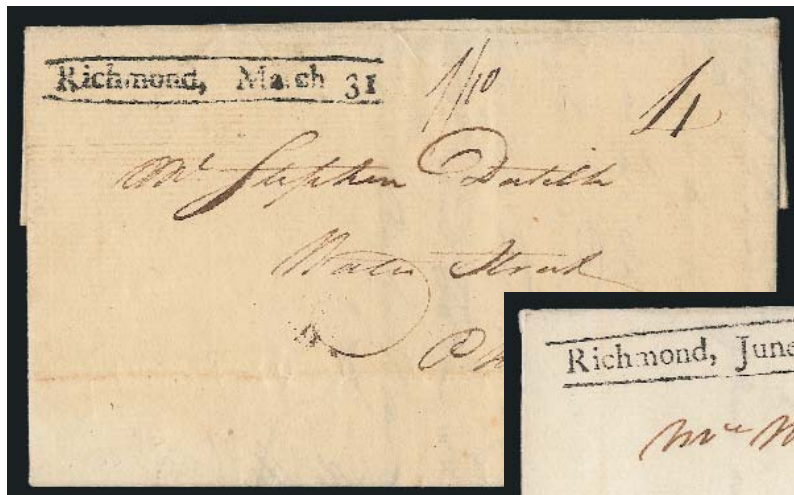 Richmond, March 31
1/10
4
Mr Stephen Dutilh
Water Street
Richmond, June